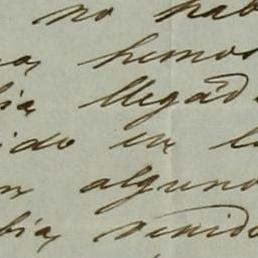 no hab
hemos
bia llegad
ido en l
en alguno
bia venido